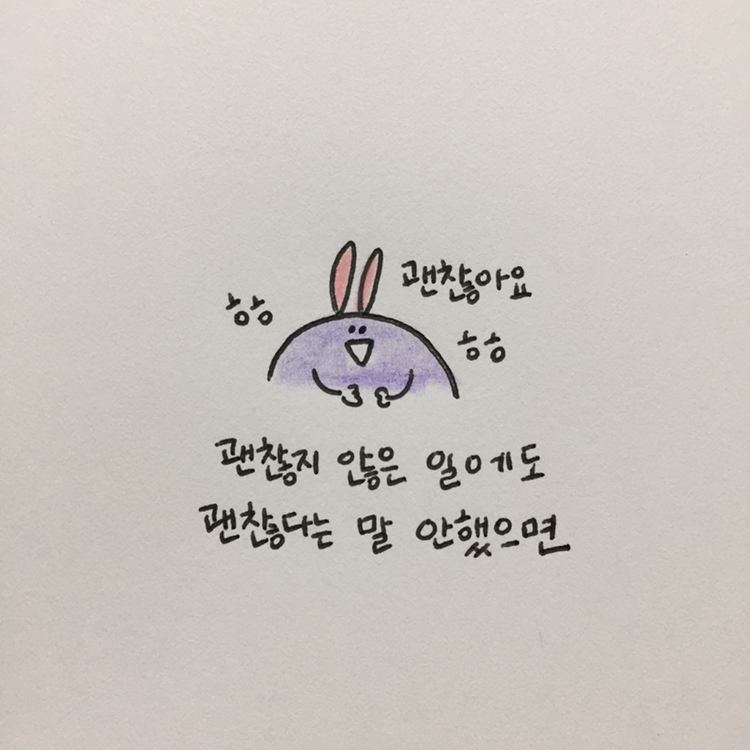 괜찮아요
ㅎㅎ
ㅎㅎ
괜찮지 않은 일에도
괜찮다는 말 안했으면